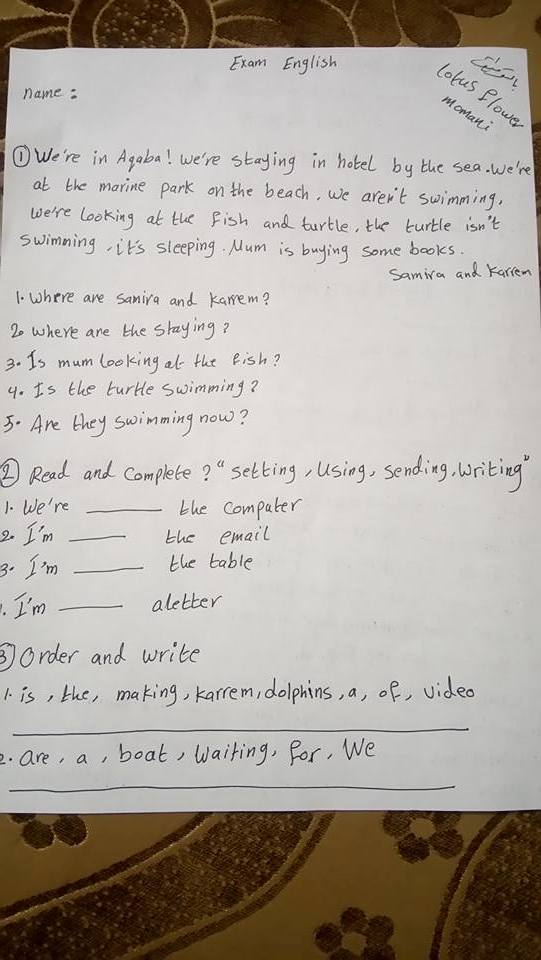 Exam English
name :
lotus flower
momani
① We're in Aqaba! we're staying in hotel by the sea. we're
at the marine park on the beach. we aren't swimming,
we're looking at the fish and turtle, the turtle isn't
swimming, it's sleeping. Mum is buying some books.
Samira and Karrem
1. Where are samira and karrem?
2. where are the staying?
3. Is mum looking at the fish?
4. Is the turtle swimming?
5. Are they swimming now?
② Read and complete? "setting, using, sending, writing"
1. We're ______ the computer
2. I'm ______ the email
3. I'm ______ the table
. I'm ______ aletter
3) Order and write
1. is, the, making, karrem, dolphins, a, of, video
2. are, a, boat, waiting, for, We